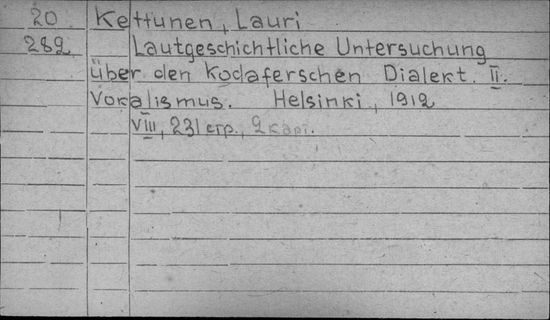 20 Kettunen, Lauri
282 Lautgeschichtliche Untersuchung
über den Kodaferschen Dialekt. II.
Vokalismus. Helsinki, 1912
VIII, 231 стр., 2 карт.